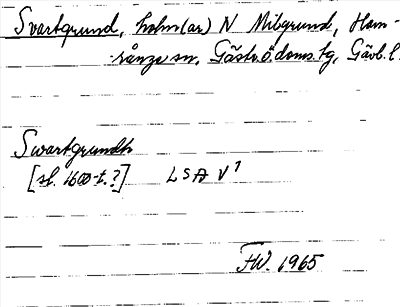 Svartgrund, holm(ar) N Milgrund, Ham-
rånge sn, Gästr. ö. doms. tg, Gävl. l.
Swartgrundh
[sl. 1600-t.?] LSA V 1
FW. 1965